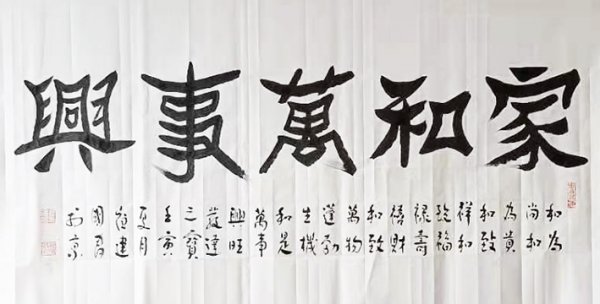 家和萬事興
和為
尚和
為貴
和致
祥和
致福
祿壽
禧財
和致
萬物
蓬勃
生機
和是
萬事
興旺
發達
三寶
壬寅
夏月
建
國
於京